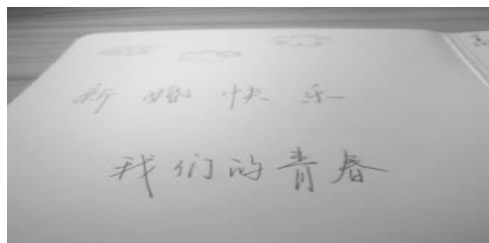 新婚快乐
我们的青春